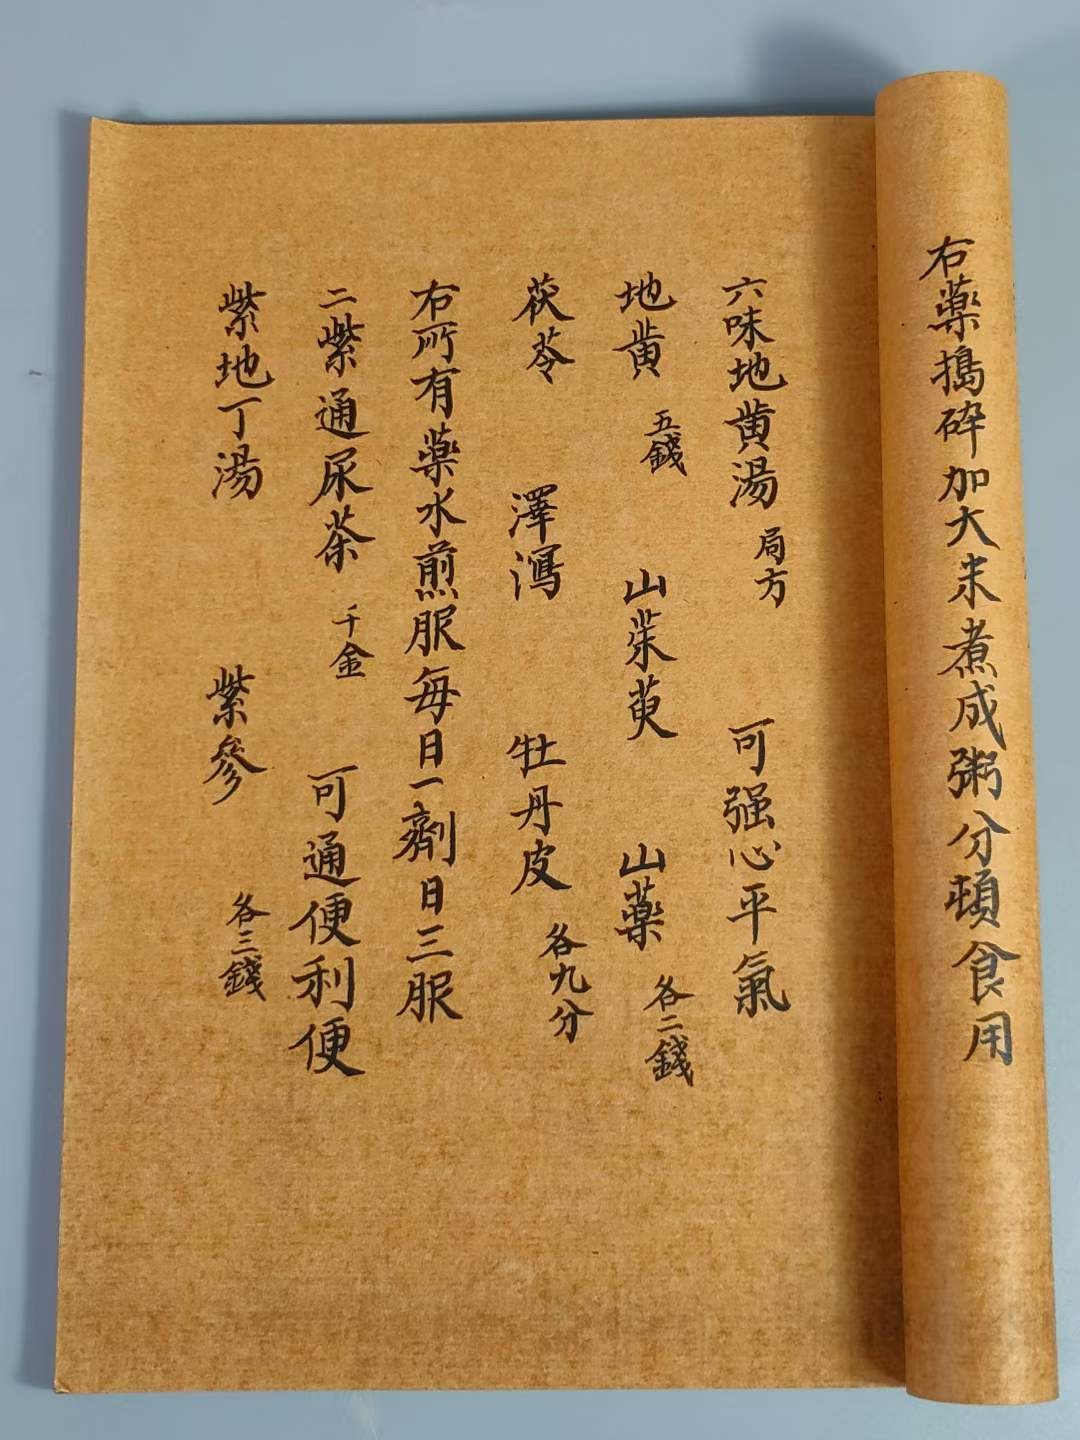 右藥搗碎加大米煮成粥分頓食用
六味地黄湯 局方 可强心平氣
地黄 五錢 山茱萸 山藥 各二錢
茯苓 澤瀉 牡丹皮 各九分
右所有藥水煎服每日一劑日三服
二紫通尿茶 千金 可通便利便
紫地丁湯 紫參 各三錢